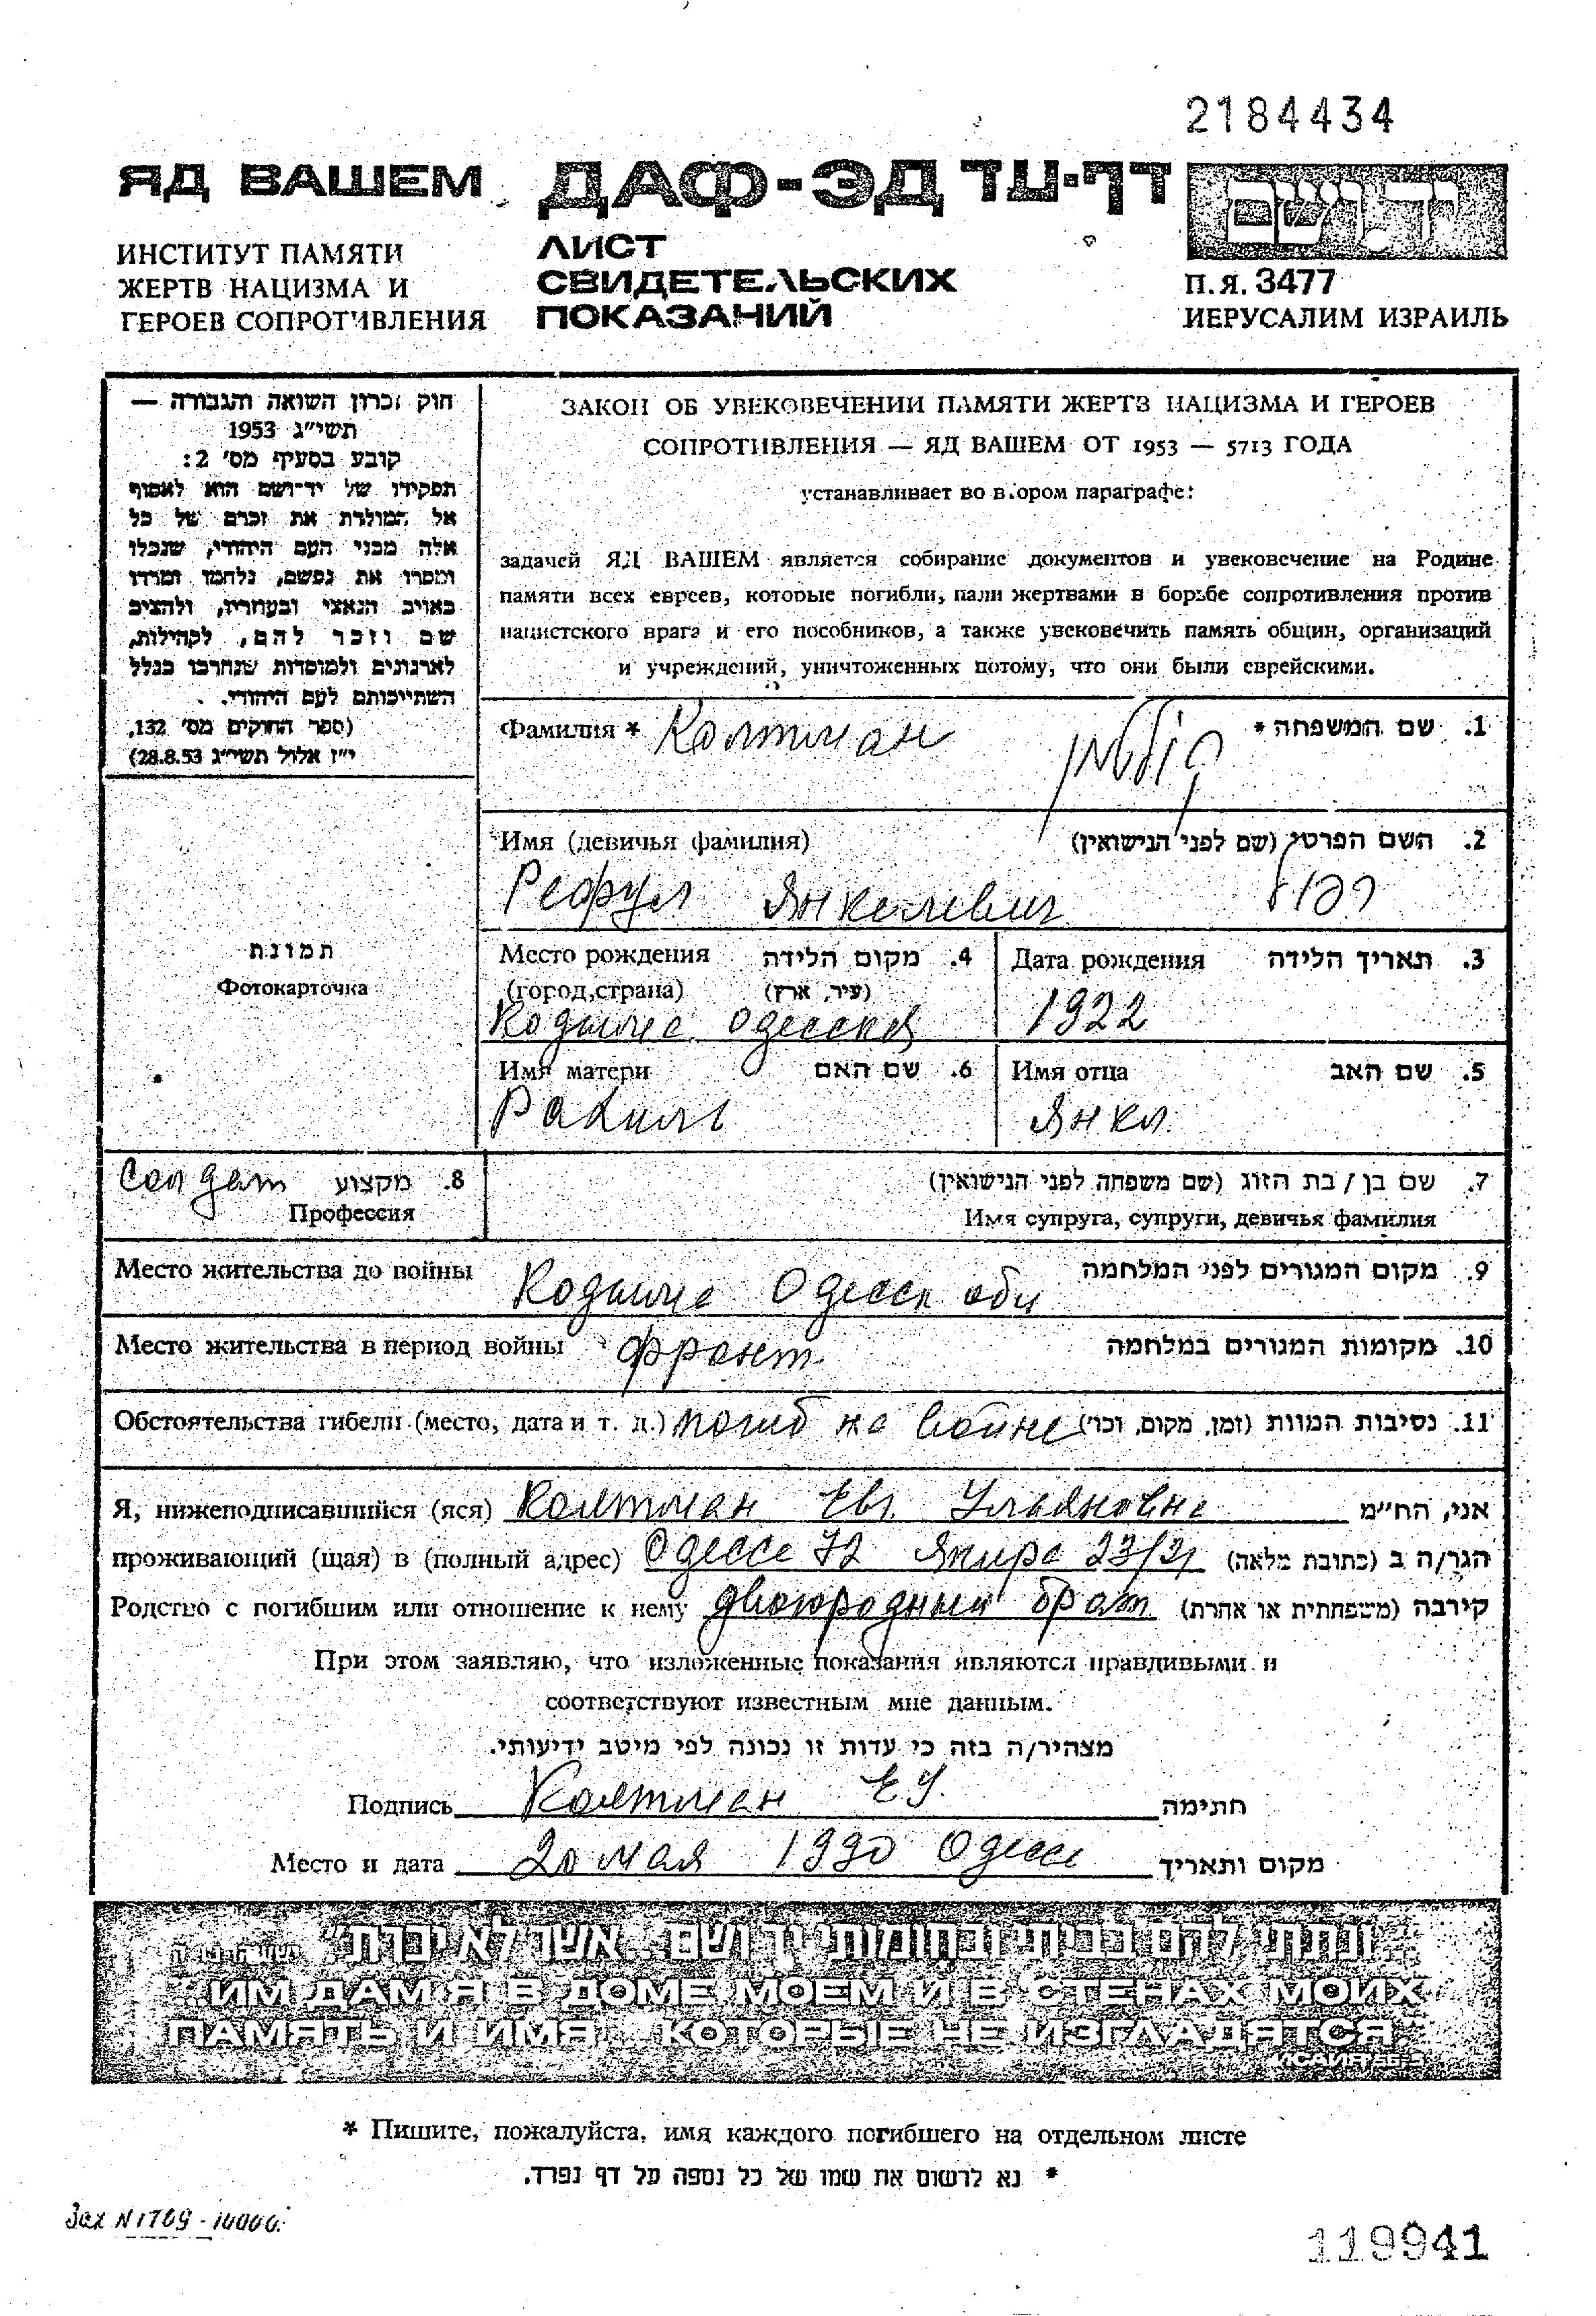 2184434
ЯД ВАШЕМ ДАФ-ЭД דף-עד יד ושם
ИНСТИТУТ ПАМЯТИ
ЖЕРТВ НАЦИЗМА И
ГЕРОЕВ СОПРОТИВЛЕНИЯ
ЛИСТ
СВИДЕТЕЛЬСКИХ
ПОКАЗАНИЙ
П.Я. 3477
ИЕРУСАЛИМ ИЗРАИЛЬ
חוק זכרון השואה והגבורה —
תשי״ג 1953
קובע בסעיף מס׳ 2:
תפקידו של יד־ושם הוא לאסוף
אל המולדת את זכרם של כל
אלה מבני העם היהודי, שנפלו
ומסרו את נפשם, נלחמו ומרדו
באויב הנאצי ובעוזריו, ולהציב
שם וזכר להם, לקהילות,
לארגונים ולמוסדות שנחרבו בגלל
השתייכותם לעם היהודי.
(ספר החוקים מס׳ 132,
י״ז אלול תשי״ג 28.8.53)
ЗАКОН ОБ УВЕКОВЕЧЕНИИ ПАМЯТИ ЖЕРТВ НАЦИЗМА И ГЕРОЕВ
СОПРОТИВЛЕНИЯ — ЯД ВАШЕМ ОТ 1953 — 5713 ГОДА
устанавливает во втором параграфе:
задачей ЯД ВАШЕМ является собирание документов и увековечение на Родине
памяти всех евреев, которые погибли, пали жертвами в борьбе сопротивления против
нацистского врага и его пособников, а также увековечить память общин, организаций
и учреждений, уничтоженных потому, что они были еврейскими.
Фамилия * Колтман קולטמן 1. שם המשפחה *
Имя (девичья фамилия) 2. השם הפרטי (שם לפני הנישואין)
Рефул Янкелевич רפול
תמונת
Фотокарточка
Место рождения 4. מקום הלידה Дата рождения 3. תאריך הלידה
(город, страна) (עיר, ארץ)
Кодыма Одесская 1922
Имя матери 6. שם האם Имя отца 5. שם האב
Рахиль Янкл
Солдат 8. מקצוע 7. שם בן / בת הזוג (שם משפחה לפני הנישואין)
Профессия Имя супруга, супруги, девичья фамилия
Место жительства до войны Кодыма Одесск обл 9. מקום המגורים לפני המלחמה
Место жительства в период войны фронт 10. מקומות המגורים במלחמה
Обстоятельства гибели (место, дата и т. д.) погиб на войне 11. נסיבות המוות (זמן, מקום, וכו׳)
Я, нижеподписавшийся (яся) Колтман Евг. Ульяновна אני, הח״מ
проживающий (щая) в (полный адрес) Одесса 72 Якира 23/21 הגר/ה ב (כתובת מלאה)
Родство с погибшим или отношение к нему двоюродный брат קירבה (משפחתית או אחרת)
При этом заявляю, что изложенные показания являются правдивыми и
соответствуют известным мне данным.
מצהיר/ה בזה כי עדות זו נכונה לפי מיטב ידיעותי.
Подпись Колтман Е.У. חתימה
Место и дата 20 мая 1990 Одесса מקום ותאריך
״ונתתי להם בביתי ובחומותי יד ושם... אשר לא יכרת״
„ИМ ДАМ Я В ДОМЕ МОЕМ И В СТЕНАХ МОИХ
ПАМЯТЬ И ИМЯ... КОТОРЫЕ НЕ ИЗГЛАДЯТСЯ"
ИСАЙЯ 56:5
* Пишите, пожалуйста, имя каждого погибшего на отдельном листе
* נא לרשום את שמו של כל נספה על דף נפרד.
Зак N 1709 - 10000.
119941